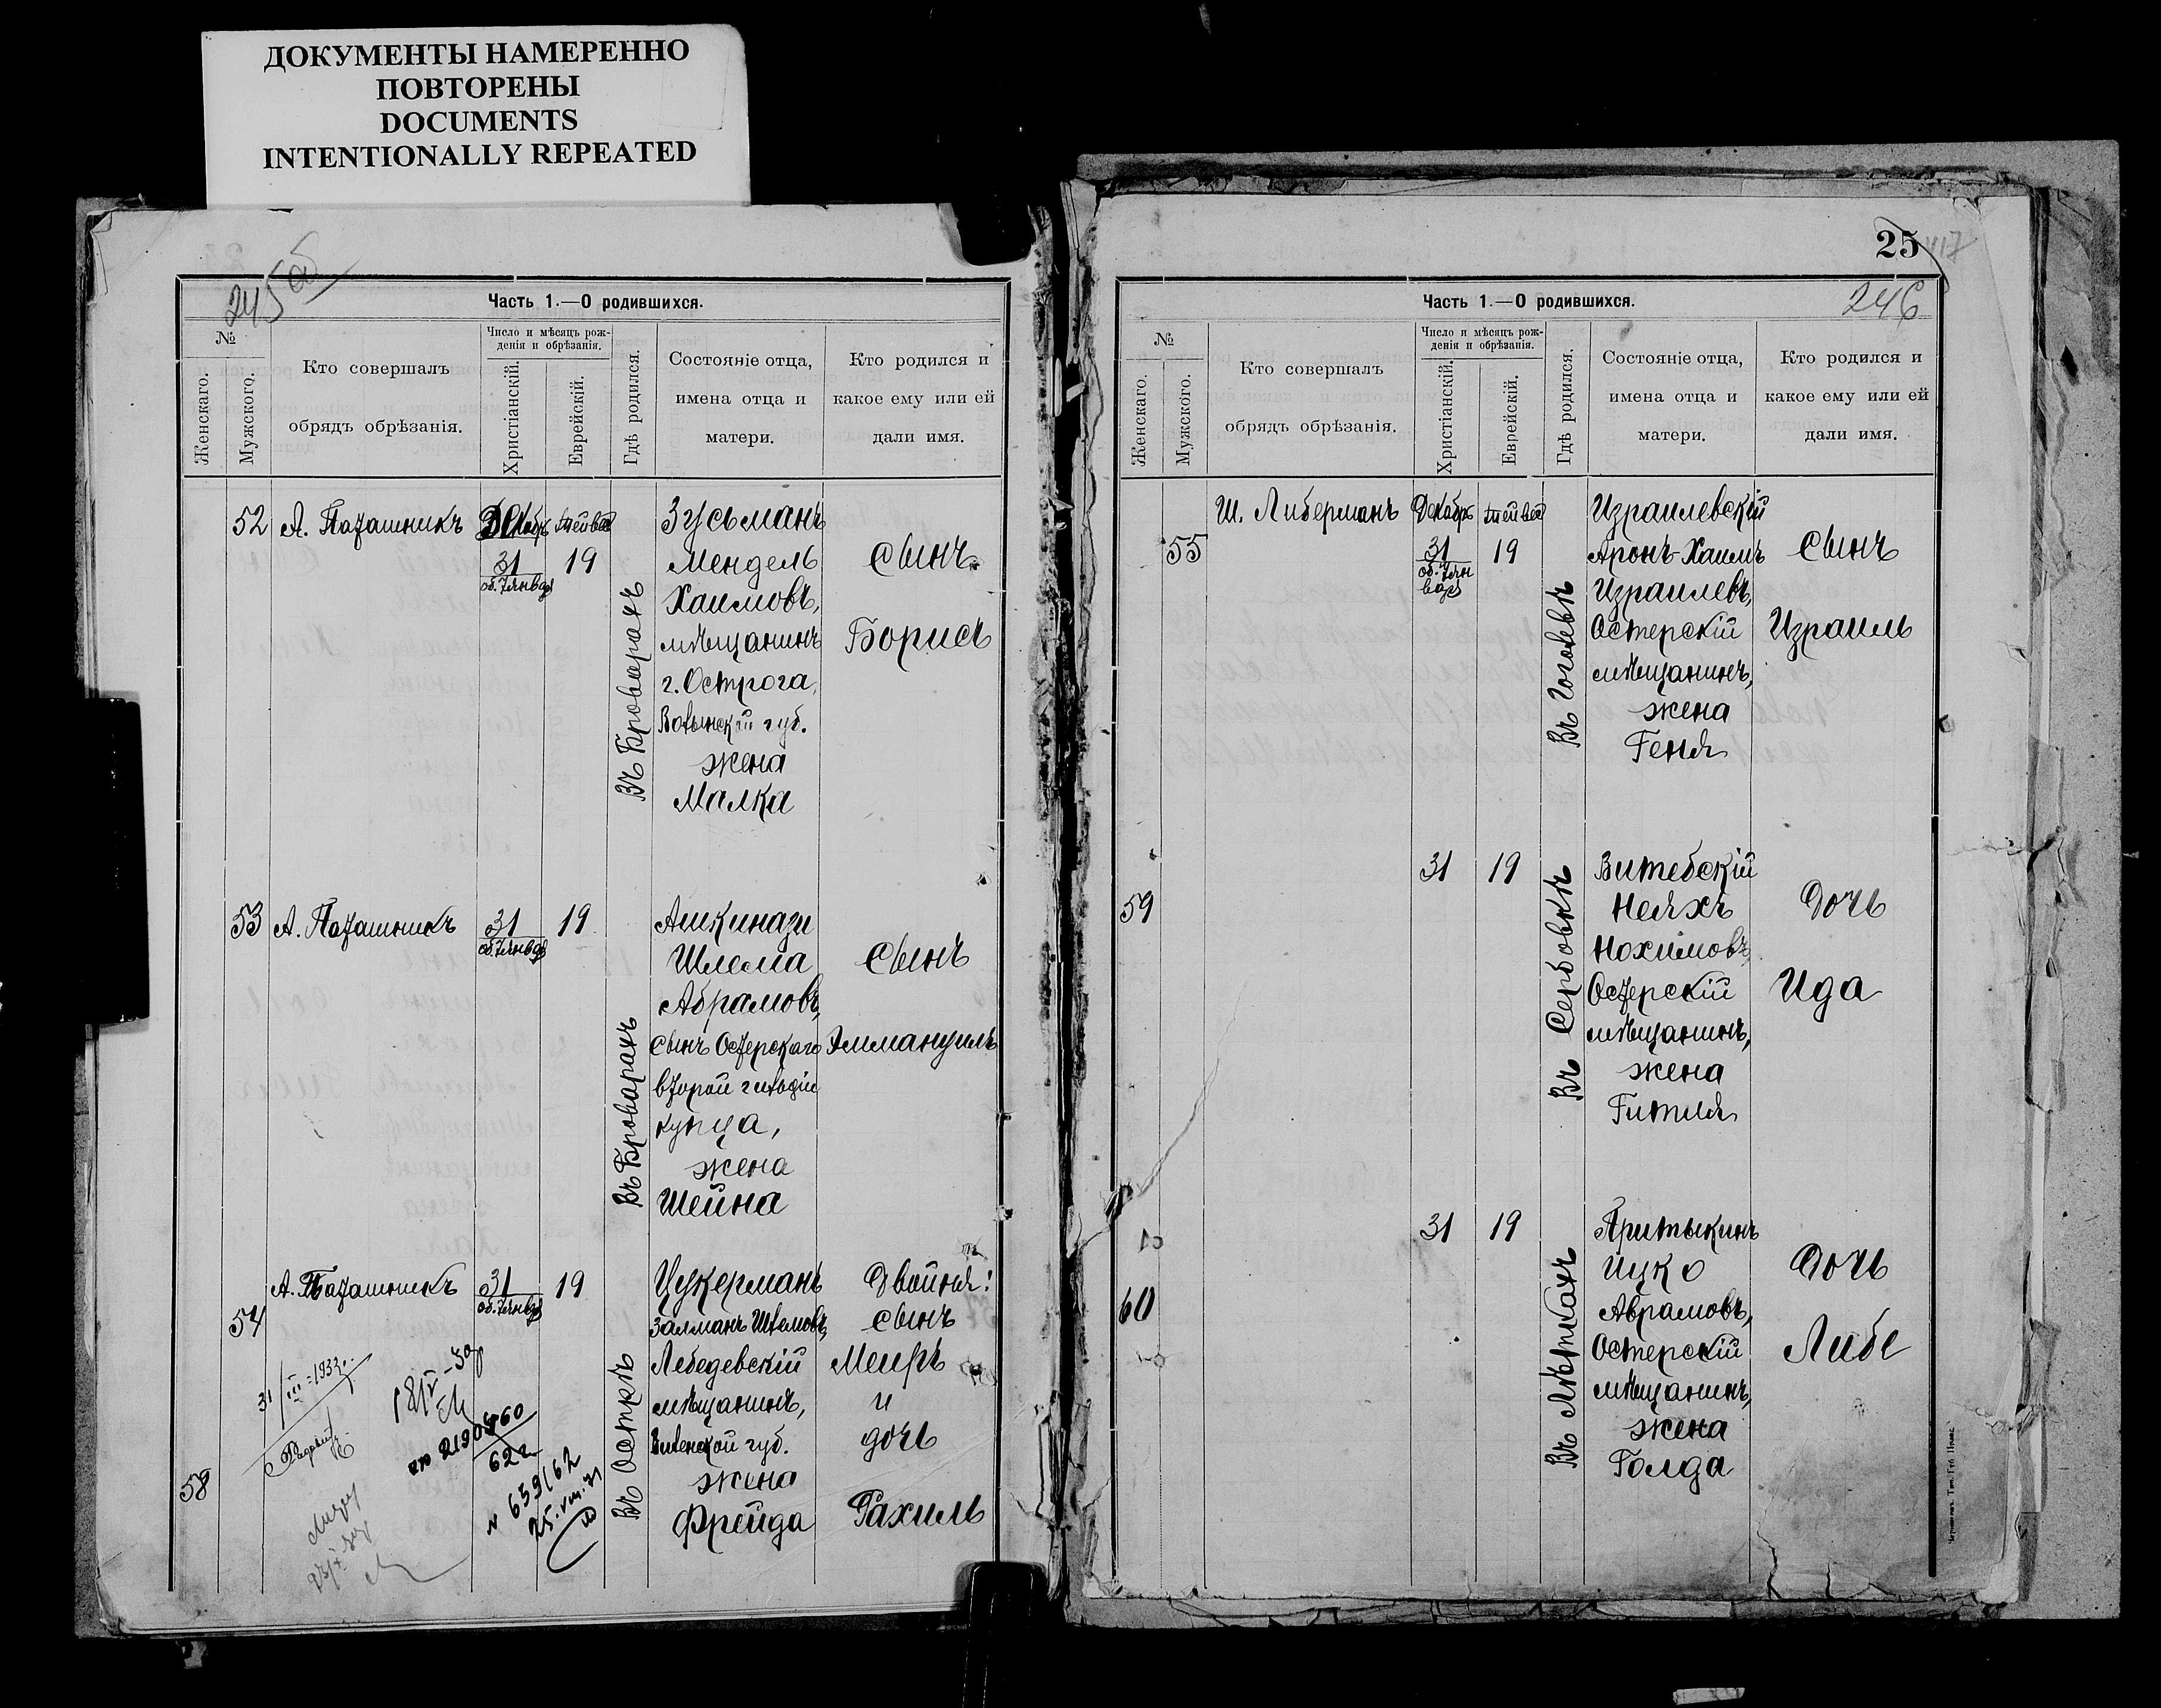 ДОКУМЕНТЫ НАМЕРЕННО
ПОВТОРЕНЫ
DOCUMENTS
INTENTIONALLY REPEATED
245 об
Часть 1.—О родившихся.
№
Женскаго.
Мужского.
Кто совершалъ
обрядъ обрѣзанія.
Число и мѣсяцъ рож-
денія и обрѣзанія.
Христіанскій.
Еврейскій.
Гдѣ родился.
Состояніе отца,
имена отца и
матери.
Кто родился и
какое ему или ей
дали имя.
52
А. Паташникъ
Декабрь
31
об. 7 января
тейвес
19
Въ Броварахъ
Зусьманъ
Мендель
Хаимовъ,
мѣщанинъ
г. Острога,
Волынской губ.
жена
Малка
сынъ
Борисъ
53
А. Паташникъ
31
об. 7 января
19
Въ Броварахъ
Ашкинази
Шлема
Абрамовъ,
сынъ Остерскаго
второй гильдіи
купца,
жена
Шейна
Сынъ
Эммануилъ
54
58
А. Паташникъ
31
об. 7 января
19
Въ Острѣ
Цукерманъ
Залманъ Шлемовъ,
Лебедевскій
мѣщанинъ,
Виленской губ.
жена
Фрейда
Двойня:
сынъ
Меиръ
и
дочь
Рахиль
31/III-1933
62 г.
№ 639/62
25.VIII.71
25
246
Часть 1.—О родившихся.
№
Женскаго.
Мужского.
Кто совершалъ
обрядъ обрѣзанія.
Число и мѣсяцъ рож-
денія и обрѣзанія.
Христіанскій.
Еврейскій.
Гдѣ родился.
Состояніе отца,
имена отца и
матери.
Кто родился и
какое ему или ей
дали имя.
55
Ш. Либерманъ
Декабрь
31
об. 7 ян
варя
тейвес
19
Въ Гоголевѣ
Израилевскій
Аронъ-Хаимъ
Израилевъ,
Остерскій
мѣщанинъ,
жена
Геня
Сынъ
Израиль
59
31
19
Витебскій
Нелхъ
Нохимовъ,
Остерскій
мѣщанинъ,
жена
Гитля
Дочь
Ида
60
31
19
Въ Лѣткахъ
Притыкинъ
Ицко
Аврамовъ,
Остерскій
мѣщанинъ,
жена
Голда
Дочь
Либе